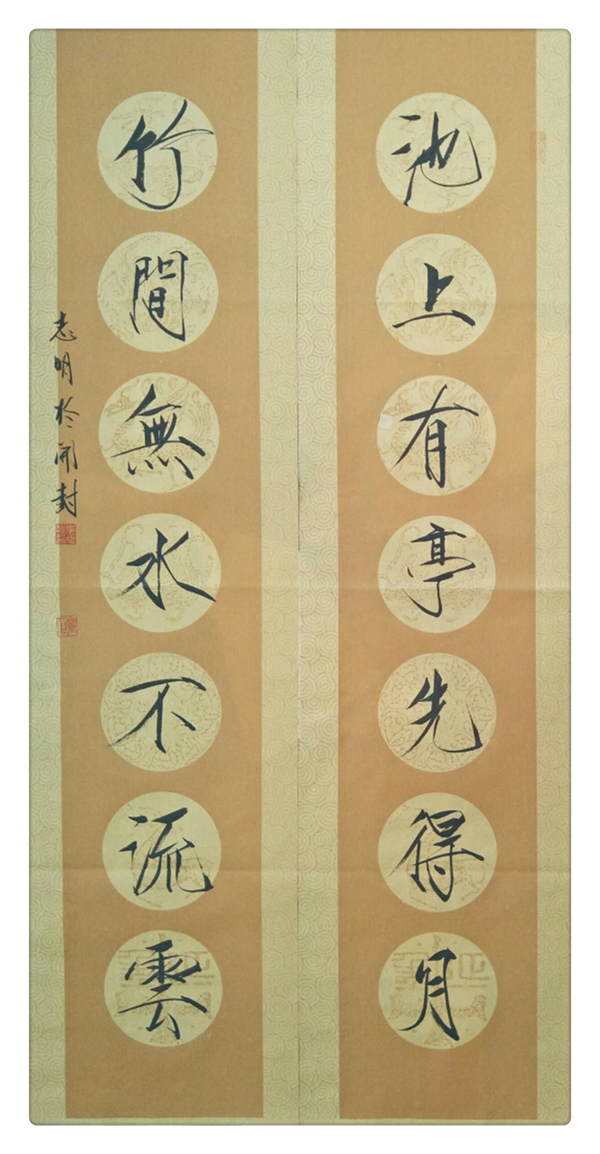 池上有亭先得月
竹間無水不流雲
志明於開封